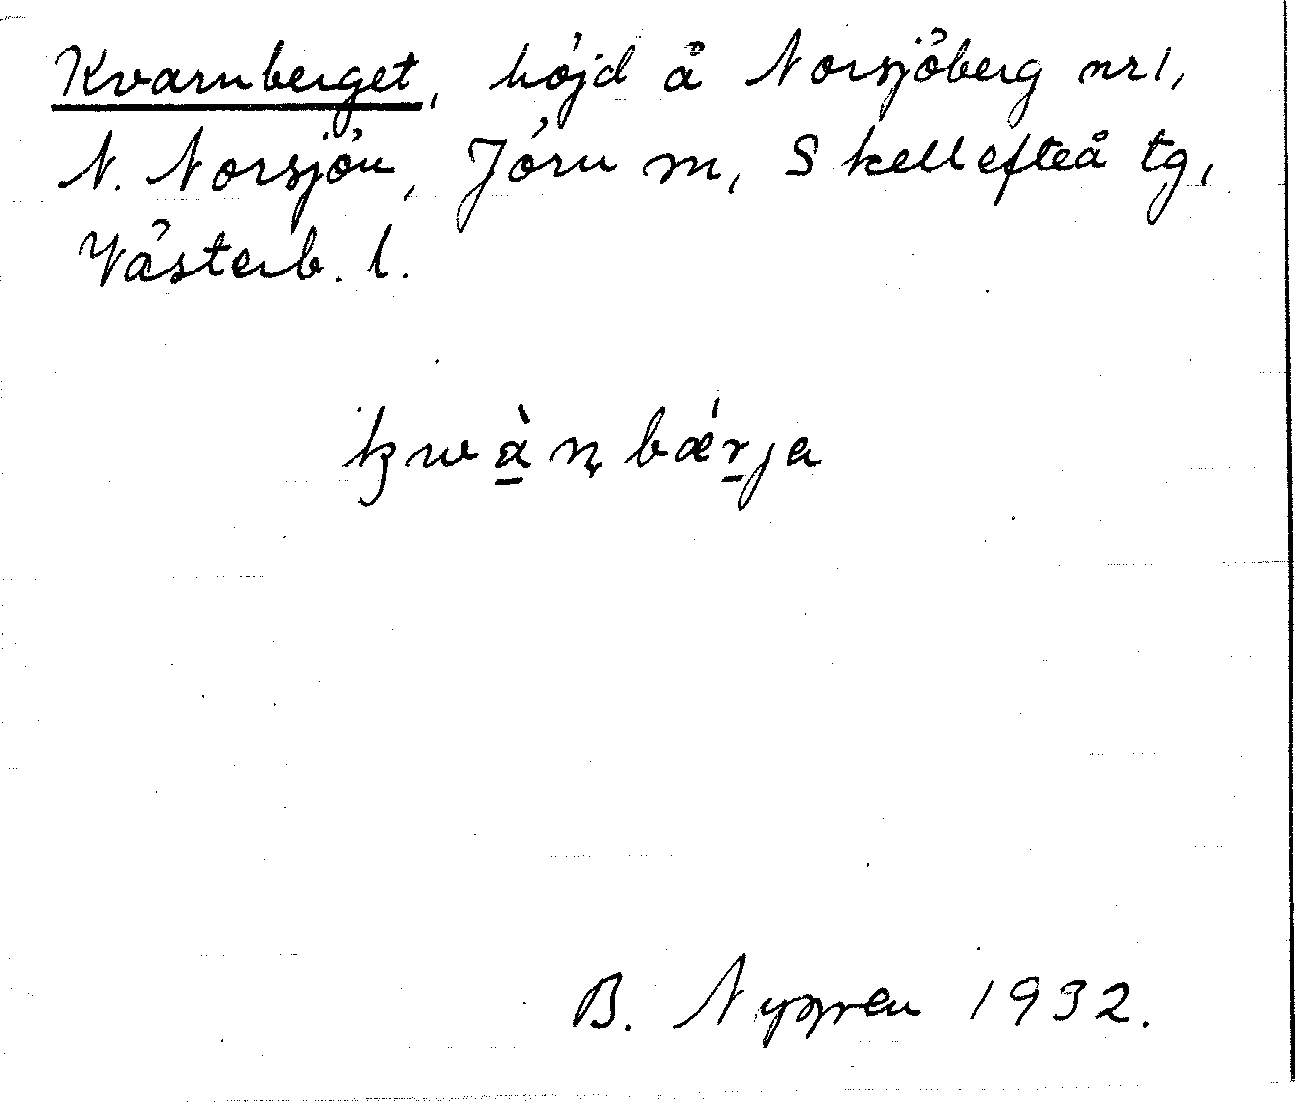 Kvarnberget, höjd å Norsjöberg nr 1,
N. Norsjön, Jörn m, Skellefteå tg,
Västerb. l.
kwàɳbǽrja
B. Nygren 1932.